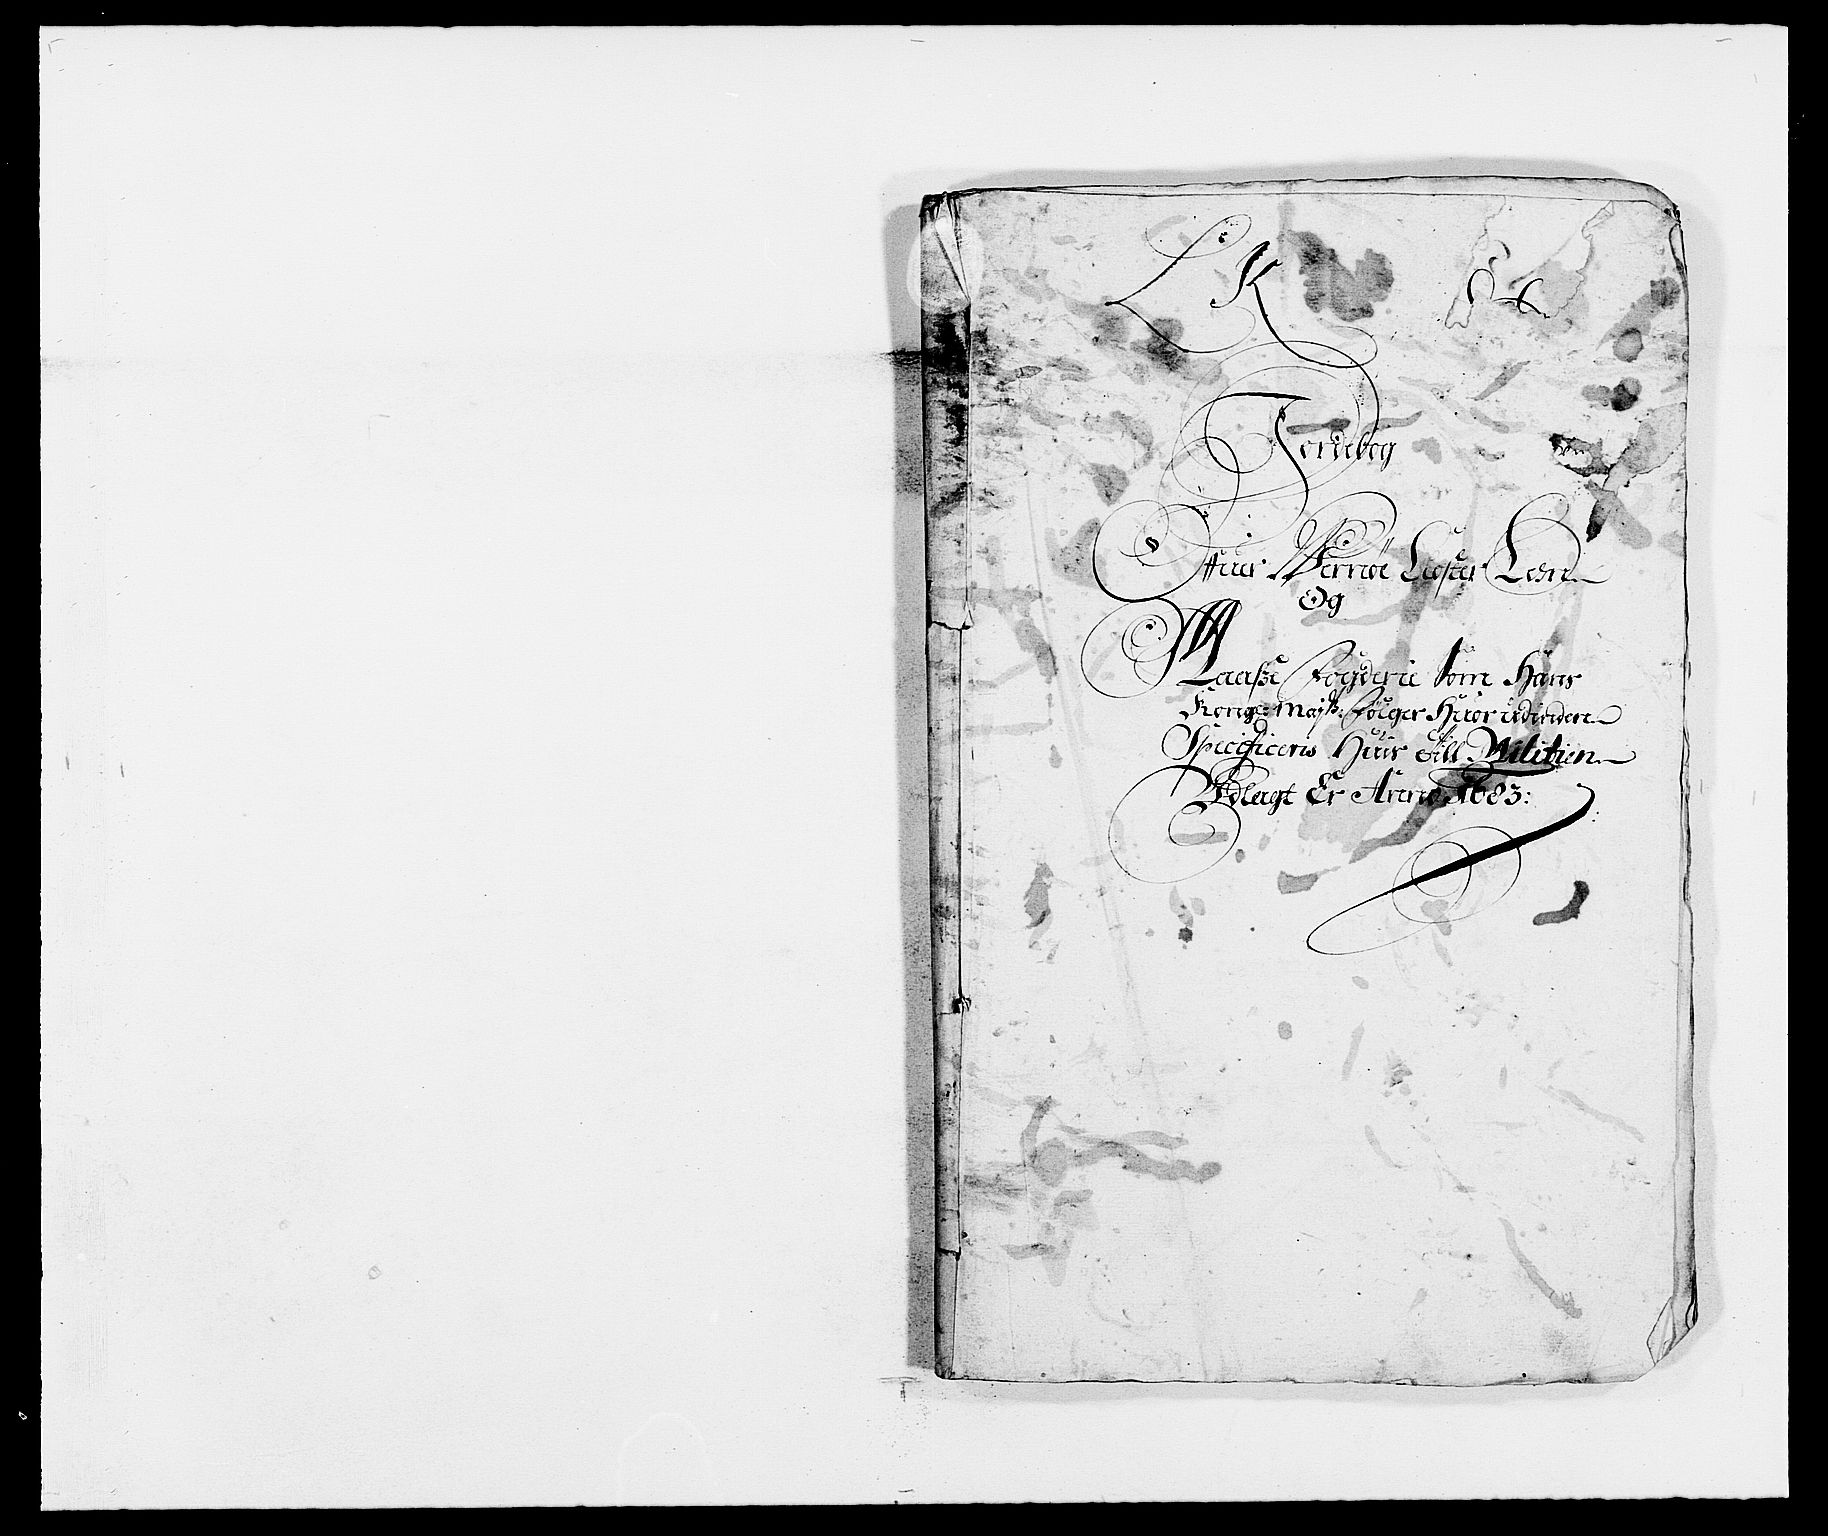 L K
Jordebog
Offuer Wernøe Closter Lehn
Og
Maaße Fogderie som Hans
Konge: Mayß: følger Huor udinden
Specificeris Huis till Militien
Udlagt Er Anno 1683: